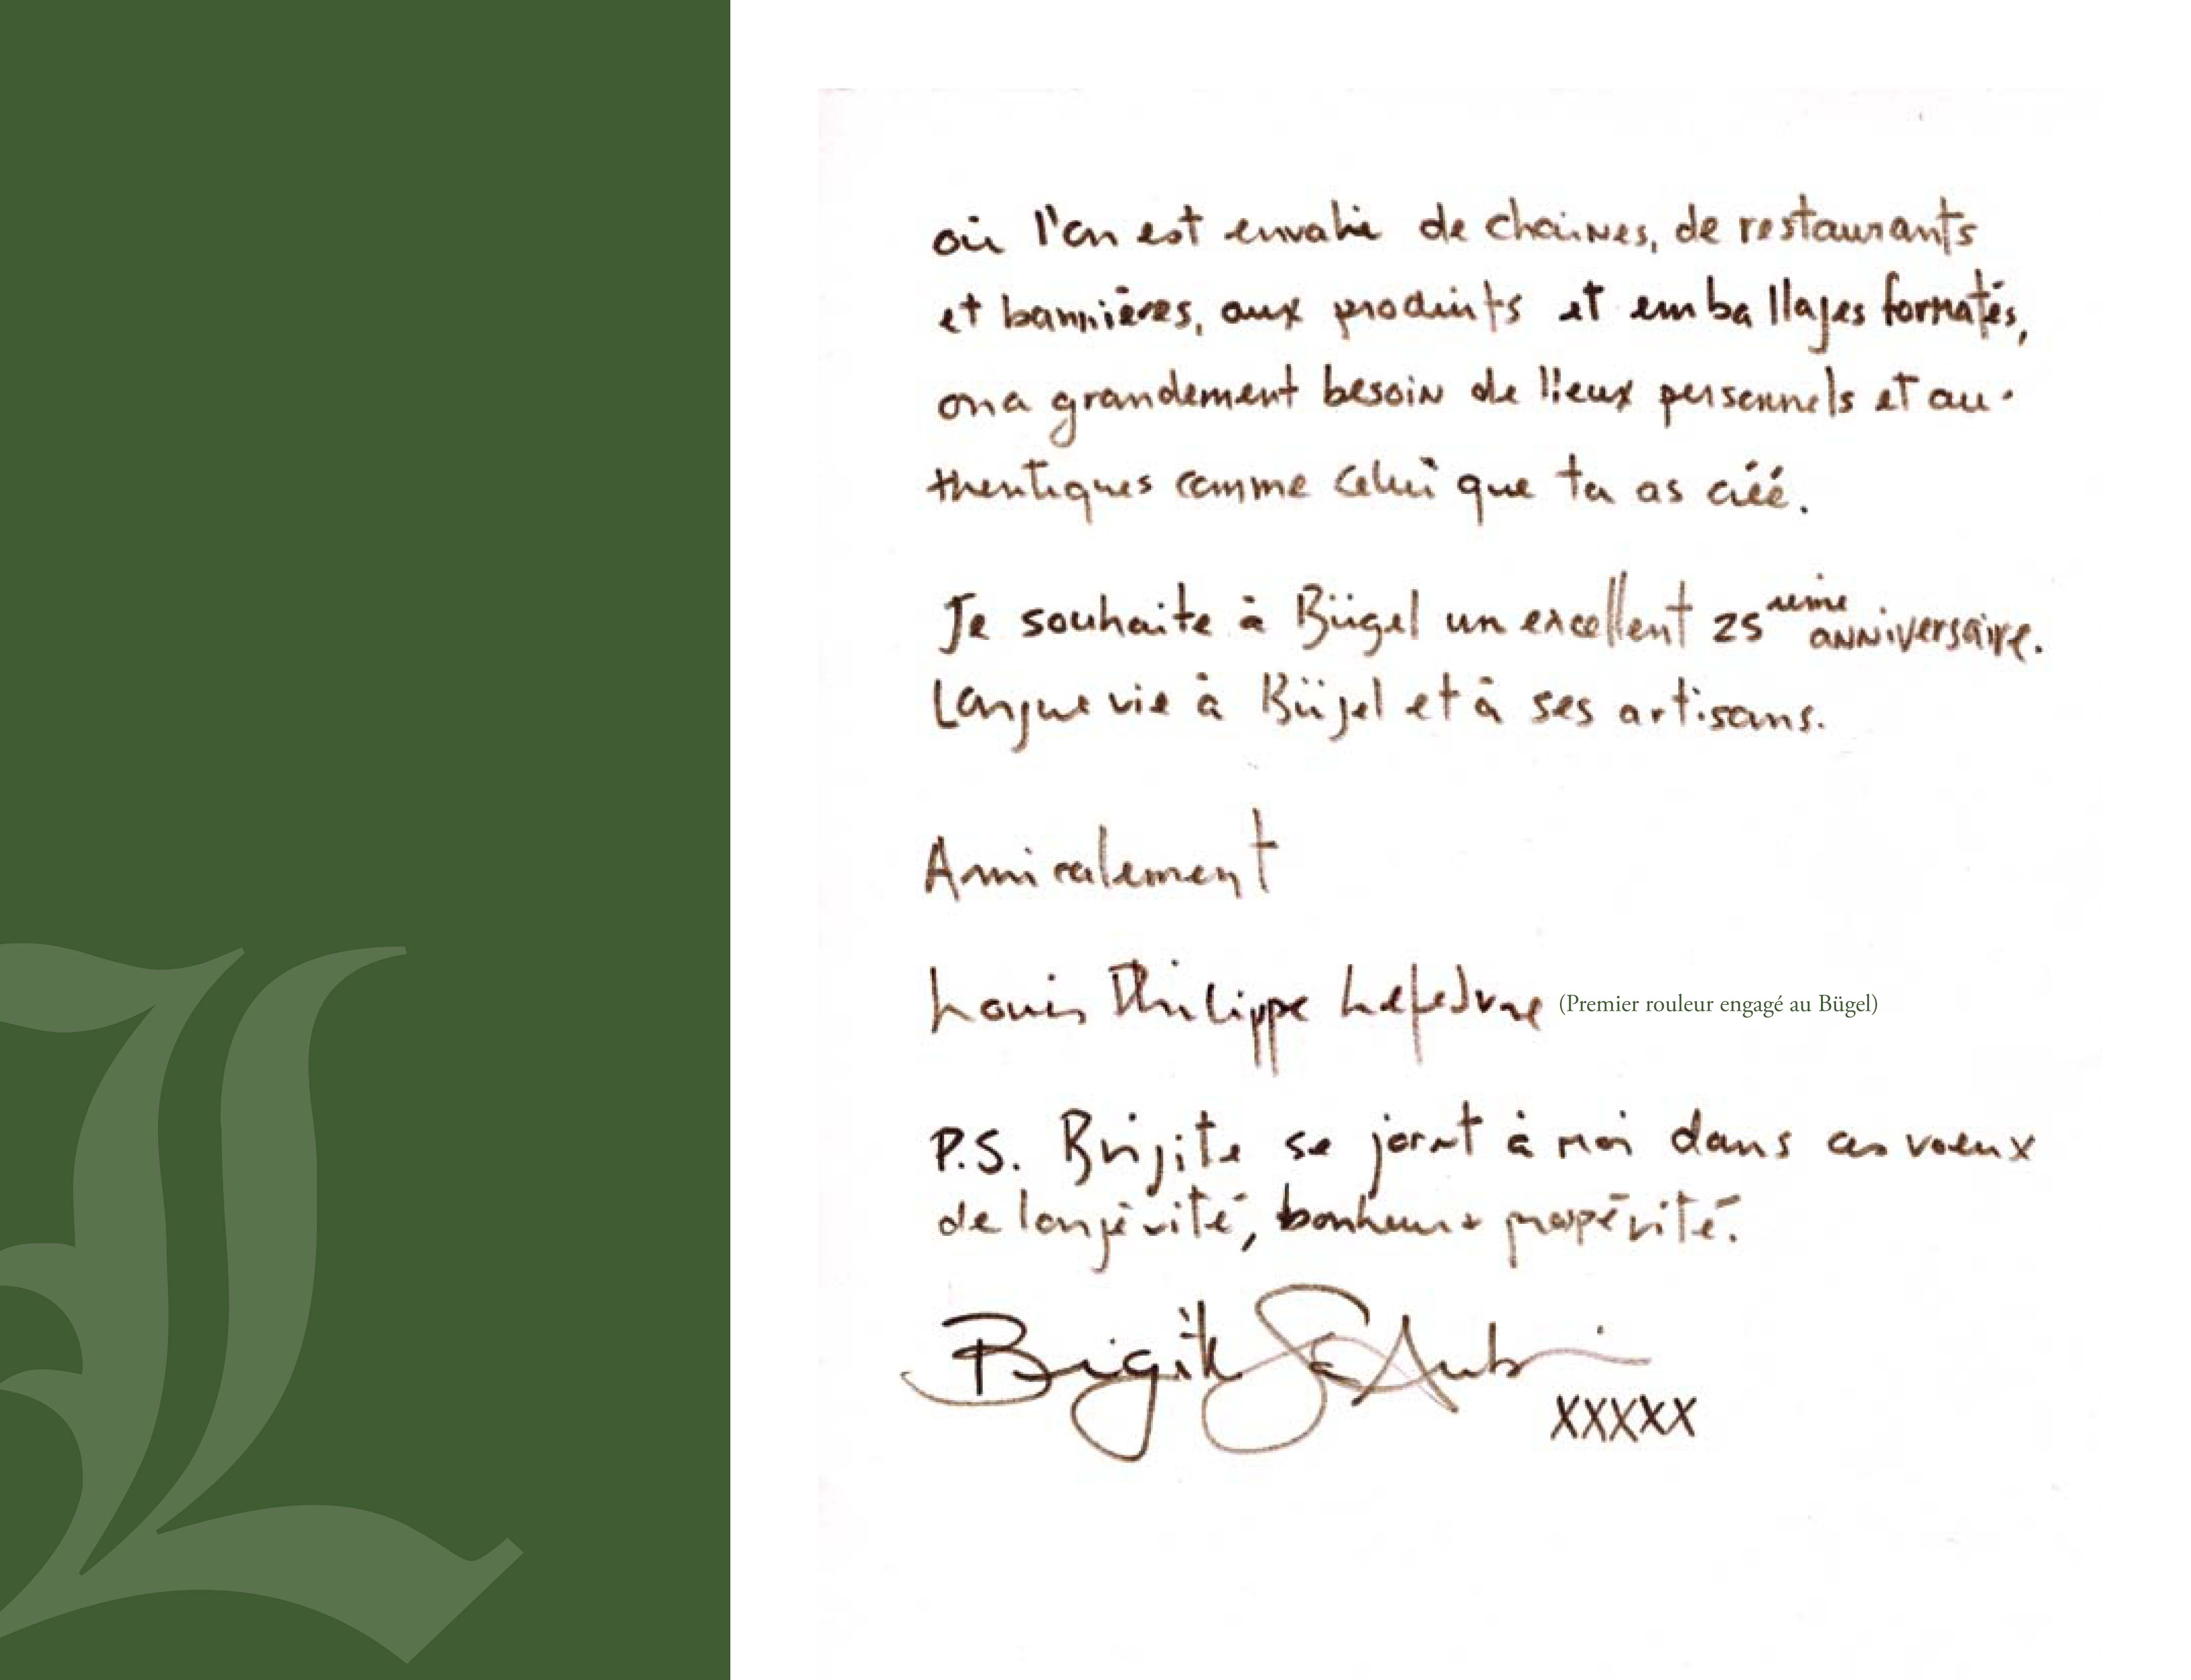 où l'on est envahie de chaines, de restaurants
et bannières, aux produits et emballages formatés,
on a grandement besoin de lieux personnels et au-
thentiques comme celui que tu as créé.
Je souhaite à Bügel un excellent 25 ième anniversaire.
Longue vie à Bügel et à ses artisans.
Amicalement
Louis Philippe Lefebvre (Premier rouleur engagé au Bügel)
P.S. Brigite se joint à moi dans ces voeux
de longévité, bonheur + prospérité.
Brigite St Aubin
XXXXX
L